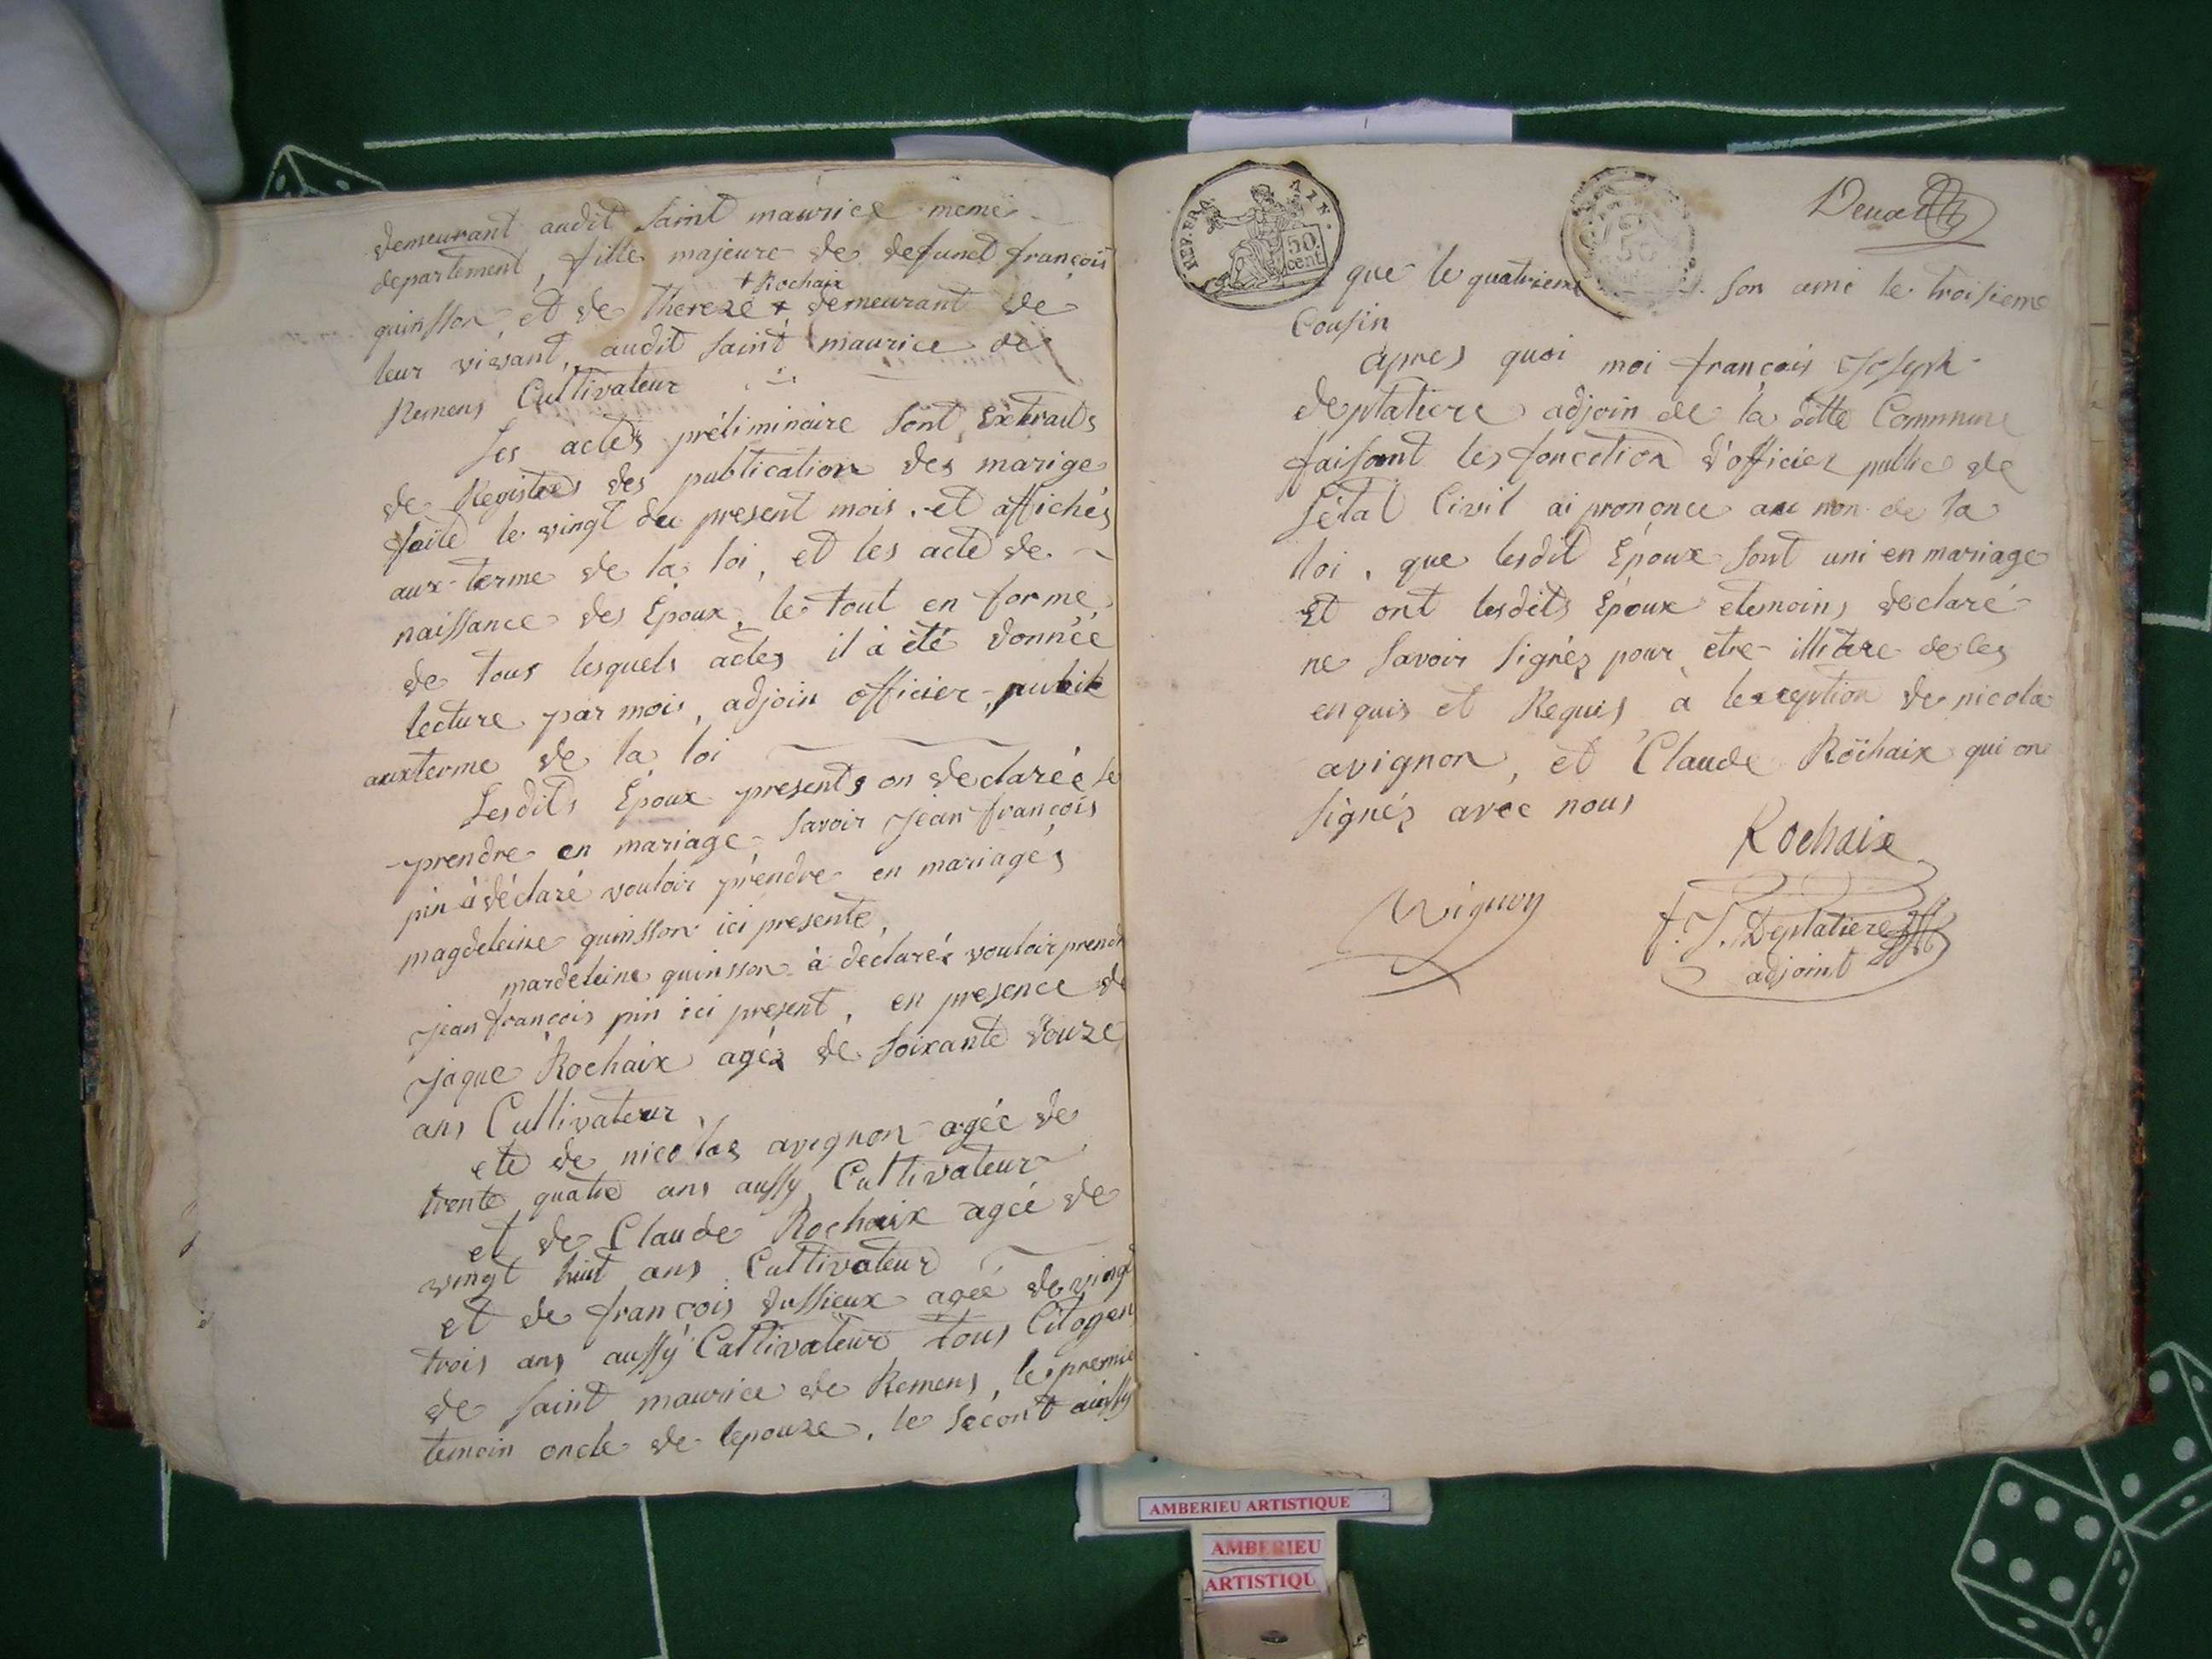 demeurant audit saint maurice meme
departement, fille majeure de defunct françois
+ Rochaix
quinsson, et de Thereze + demeurant de
leur vivant, audit saint maurice de
Remens Cultivateur
Les actes préliminaire sont, Extraits
de Registres des publication des marige
faite le vingt du present mois. et affichés
aux terme de la loi, et les acte de
naissance des Epoux, le tout en forme,
de tous lesquels actes il à été donnéé
lecture par moi, adjoin officier publik
aux terme de la loi
Lesdits Epoux presents on declaréé se
prendre en mariage savoir jean françois
pin à déclaré vouloir prendre en mariage,
magdeleine quinsson ici presente,
mardeleine quinsson à declarér vouloir prendr
jean françois pin ici present, en presence de
jaque Rochaix agéz de soixante douze
ans Cultivateur
ete de nicolas avignon agéé de
trente quatre ans aussy Cultivateur
et de Claude Rochaix agéé de
vingt huit ans Cultivateur
et de françois dussieux agéé de vingt
trois ans aussy Cultivateur tous Citoyen
de saint maurice de Remens, le premie
temoin oncle de lepouze, le secont ainsy
REP. FRA. AIN.
50 cent
50
que le quatrieme son ami le troisieme
Cousin
apres quoi moi françois Joseph
deplatiere adjoin de la ditte Commune
faisant les fonction d'officier public de
l'état Civil ai prononce au non de la
loi, que lesdit Epoux sont uni en mariage
Et ont lesdits Epoux etemoins declaré
ne savoir signéz pour etre illitere de les
enquis et Requis à lexeption de nicola
avignon, et Claude Roïhaix qui on
signéz avéc nous
Rochaix
Avignon
f. J. Deplatiere
adjoint
AMBERIEU ARTISTIQUE
AMBERIEU
ARTISTIQU